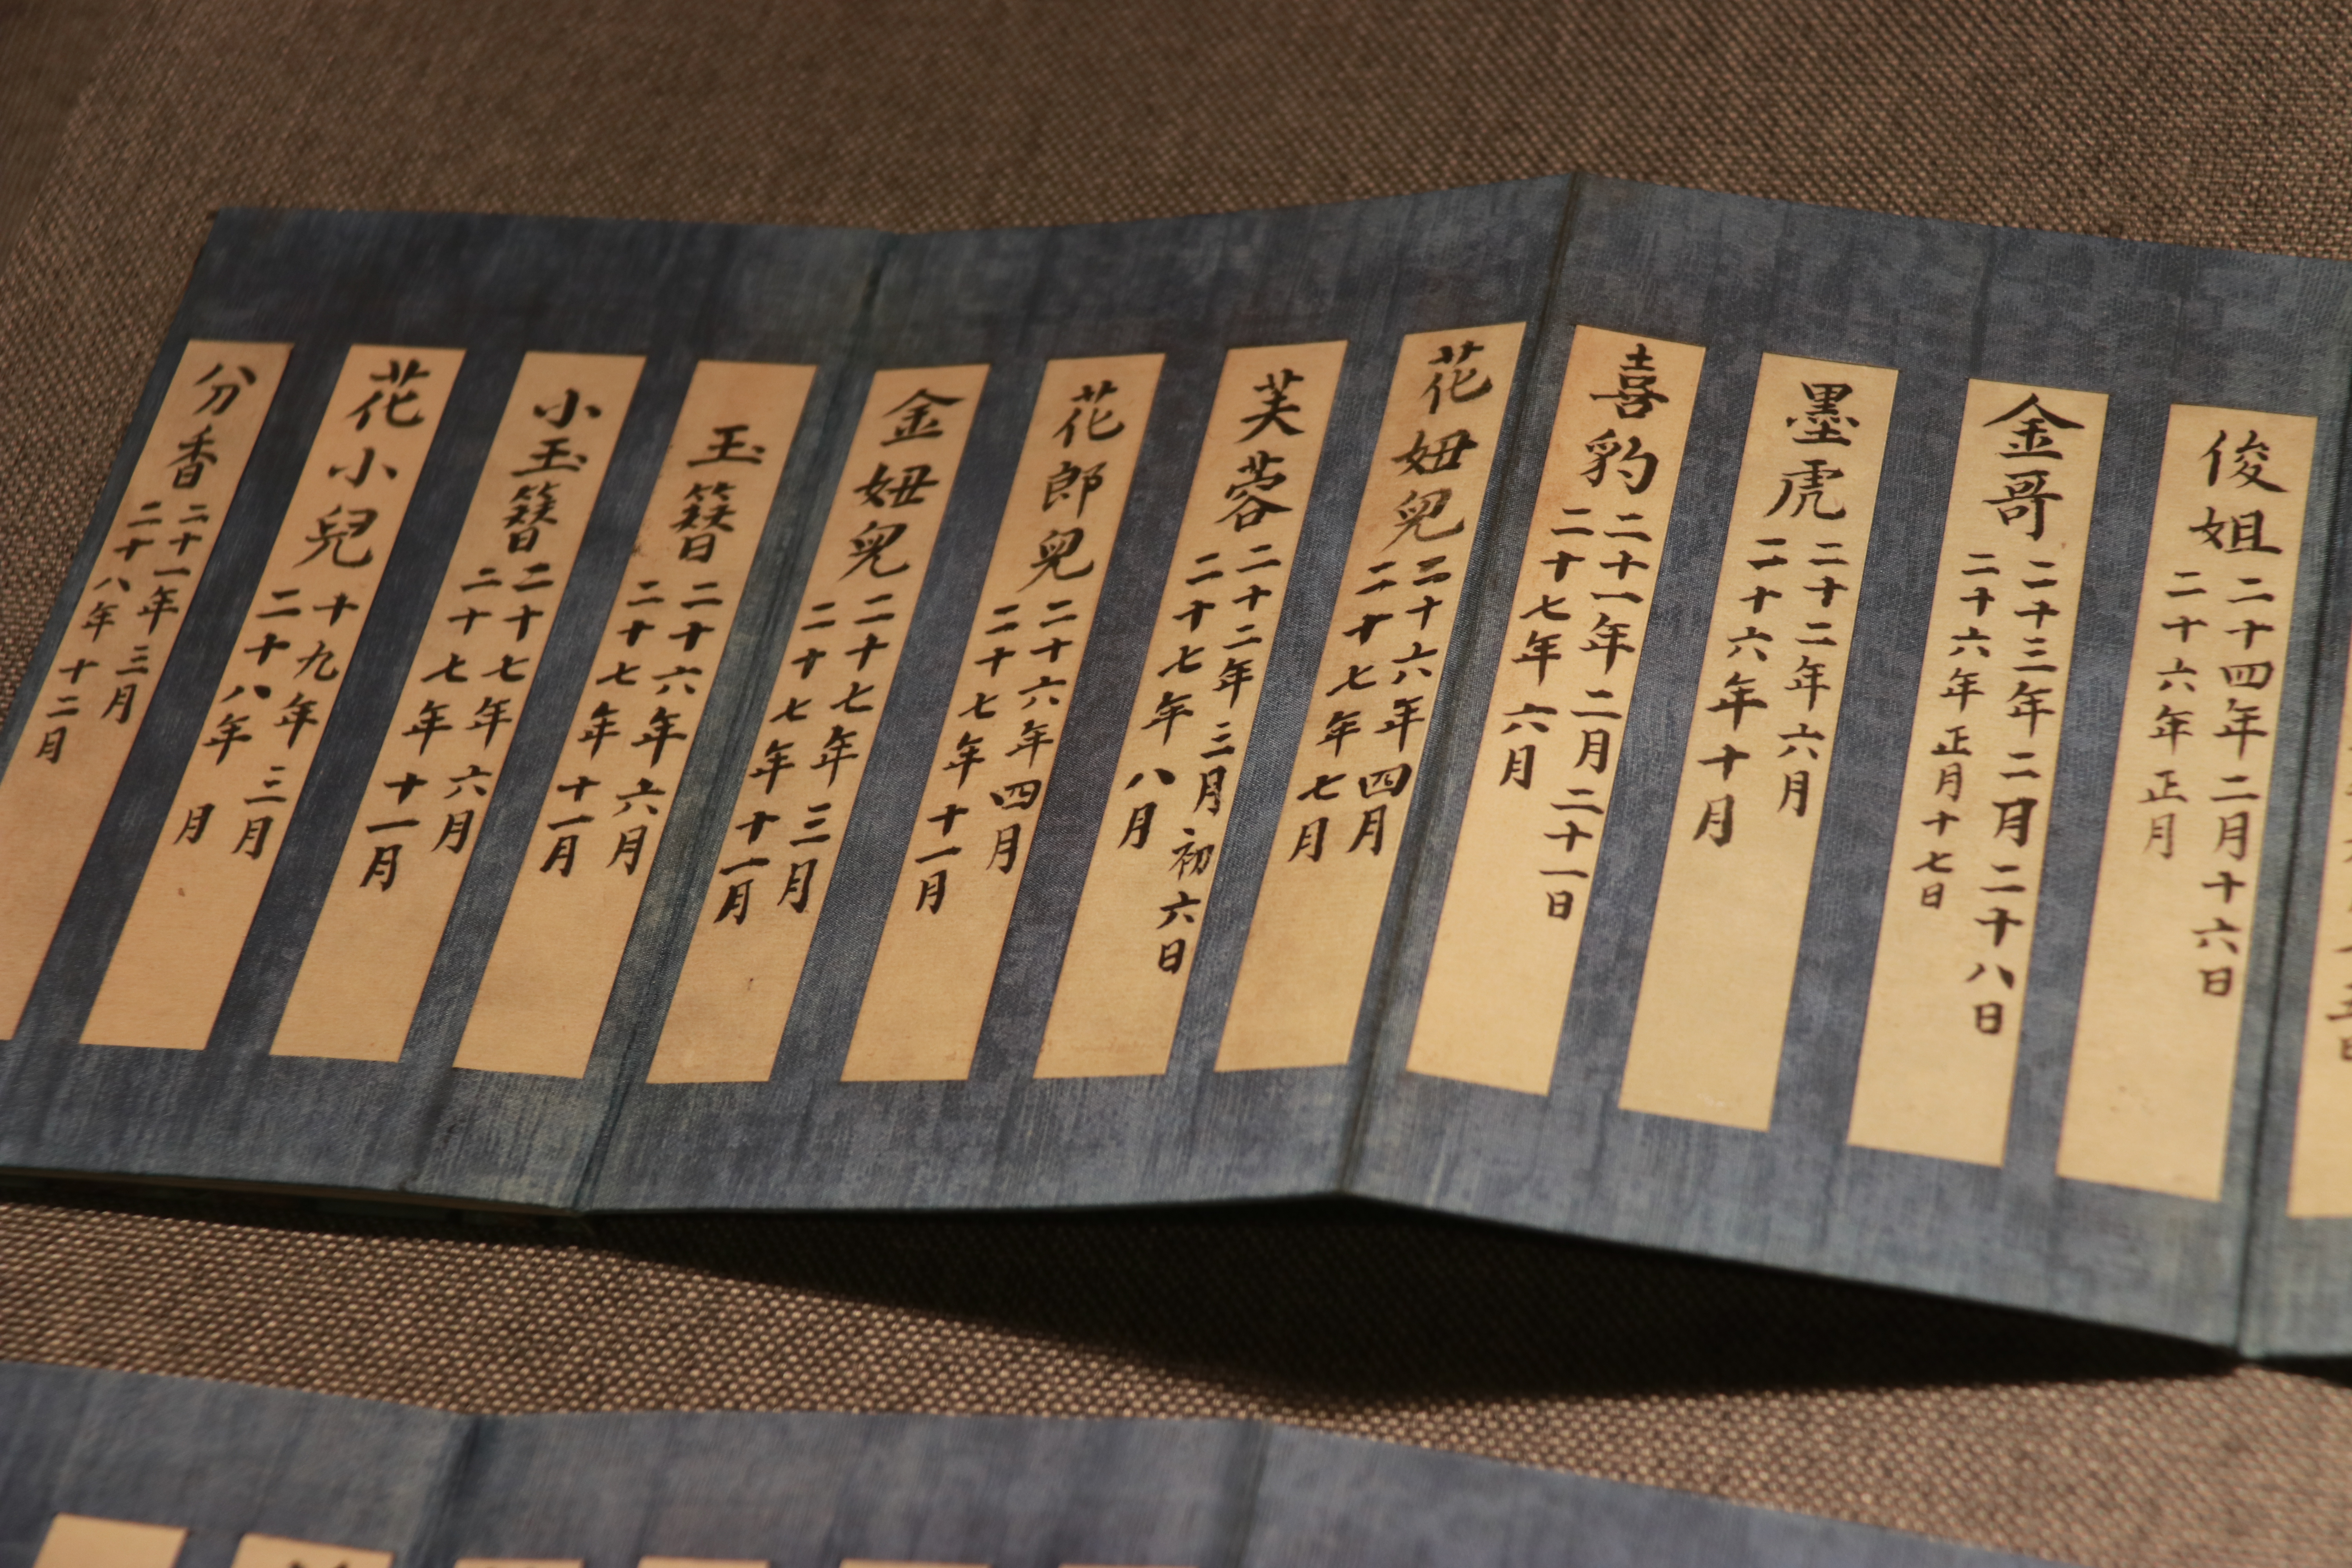 俊姐
二十四年二月十六日
二十六年正月
金哥
二十三年二月二十八日
二十六年正月十七日
墨虎
二十二年六月
二十六年十月
喜豹
二十一年二月二十一日
二十七年六月
花妞兒
二十六年四月
二十七年七月
芙蓉
二十二年三月初六日
二十七年八月
花郎兒
二十六年四月
二十七年十一月
金妞兒
二十七年三月
二十七年十一月
玉簪
二十六年六月
二十七年十一月
小玉簪
二十七年六月
二十七年十一月
花小兒
十九年三月
二十八年 月
分香
二十一年三月
二十八年十二月